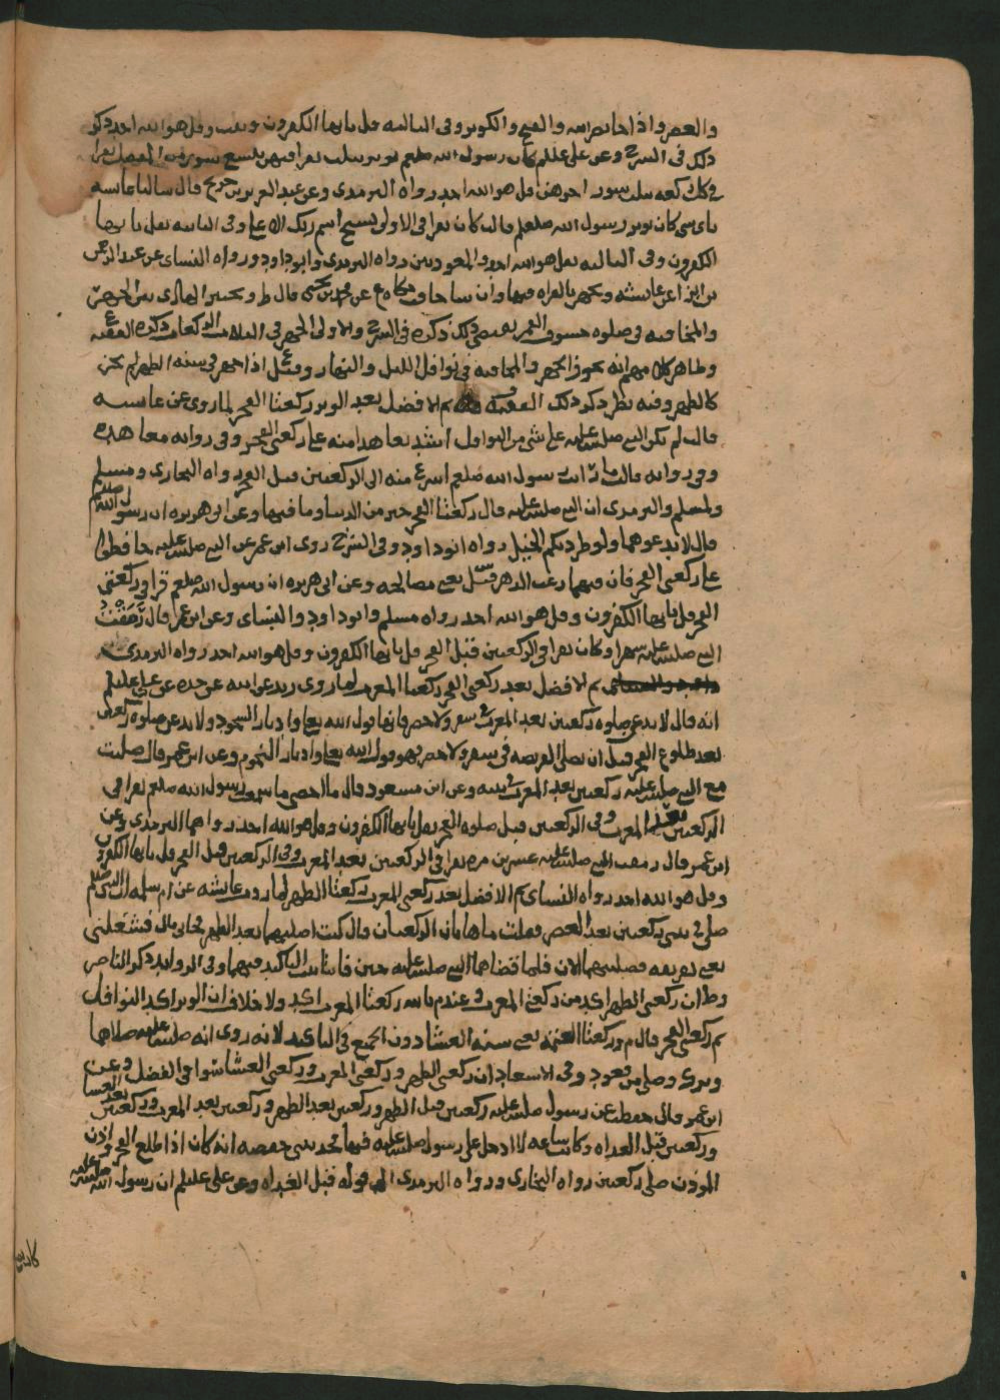 والعصر واذا جا نصر الله والفتح والكوثر وفي الثالثة قل يا ايها الكفرون وتبت وقل هو الله احد ذكر
ذلك في الشرح وعن علي علم كان رسول الله صلعم يوتر بثلث يقرا فيهن بتسع سور من المفصل يقرا
في كل ركعة بثلث سور اخرهن قل هو الله احد رواه الترمذي وعن عبد العزيز بن جريج قال سالنا عائشة
باي شي كان يوتر رسول الله صلعم قالت كان يقرا في الاولى بسبح اسم ربك الاعلى وفي الثانية بقل يا ايها
الكفرون وفي الثالثة بقل هو الله احد والمعوذتين رواه الترمذي وابو داود ورواه النساي عن عبد الرحمن
بن ابزا عن عائشة ويجهر بالقراه فيها وان شا خافت عن محمد بن يحيى قال ط وتخيير الهادي بين الجهر
والمخافتة في صلوة خسوف القمر يقتضي ذلك ذكره في الشرح والاولى الجهر في الثلاث الركعات ذكره الفقيه ع
وظاهر كلامهم انه يجوز الجهر والمخافتة في نوافل الليل والنهار وقيل ع اذا جهر في سنة الظهر لم يجز
كالظهر وفيه نظر ذكر ذلك الفقيه ف ثم الافضل بعد الوتر ركعتا الفجر لما روي عن عائشة
قالت لم يكن النبي صلى الله عليه على شي من النوافل اشد تعاهدا منه على ركعتي الفجر وفي رواية معاهدة
وفي رواية قالت ما رايت رسول الله صلعم اسرع منه الى الركعتين قبل الفجر رواه البخاري ومسلم
ولمسلم والترمذي ان النبي صلى الله عليه قال ركعتا الفجر خير من الدنيا وما فيها وعن ابي هريره ان رسول الله صلعم
قال لا تدعوهما ولو طردتكم الخيل رواه ابو داود وفي الشرح روى ابن عمر عن النبي صلى الله عليه حافظوا
على ركعتي الفجر فان فيهما رغب الدهر قيل يعني مصالحه وعن ابي هريره ان رسول الله صلعم قرا في ركعتي
الفجر قل يا ايها الكفرون وقل هو الله احد رواه مسلم وابو داود والنساي وعن ابن عمر قال رمقت
النبي صلى الله عليه شهرا وكان يقرا في الركعتين قبل الفجر قل يا ايها الكفرون وقل هو الله احد رواه الترمذي
ثم الافضل بعد ركعتي الفجر ركعتا المغرب لما روى زيد عن ابيه عن جده عن علي عليلم
انه قال لا تدعن صلوة ركعتين بعد المغرب في سفر ولا حضر فانها قول الله تعالى وادبار السجود ولا تدعن صلوة ركعتين
بعد طلوع الفجر قبل ان تصلي الفريضة في سفر ولا حضر فهو قول الله تعالى وادبار النجوم وعن ابن عمر قال صليت
مع النبي صلى الله عليه ركعتين بعد المغرب في بيته وعن ابن مسعود قال ما احصي ما سمعت رسول الله صلعم يقرا في
الركعتين بعد المغرب وفي الركعتين قبل صلوة الفجر بقل يا ايها الكفرون وقل هو الله احد رواهما الترمذي وعن
ابن عمر قال رمقت النبي صلى الله عليه عشرين مرة يقرا في الركعتين بعد المغرب وفي الركعتين قبل الفجر قل يا ايها الكفرون
وقل هو الله احد رواه النساي ثم الافضل بعد ركعتي المغرب ركعتا الظهر لما روت عائشة عن ام سلمة ان النبي صلعم
صلى في بيتي ركعتين بعد العصر فقلت ما هاتان الركعتان قال كنت اصليهما بعد الظهر فجاني مال فشغلني
يعني تفريقه فصليتهما الان فلما قضاهما النبي صلى الله عليه حين فاتتا ثبت التاكيد فيهما وفي الزوايد ذكر الناصر
وط ان ركعتي الظهر اكد من ركعتي المغرب وعند م بالله ركعتا المغرب اكد ولا خلاف ان الوتر اكد النوافل
ثم ركعتي الفجر قال م وركعتا العتمة يعني سنة العشا دون الجميع في التاكيد لانه روي انه صلى الله عليه صلاها
وترك وصلى من قعود وفي الاسعاد ان ركعتي الظهر وركعتي المغرب وركعتي العشا سوا في الفضل وعن
ابن عمر قال حفظت عن رسول صلى الله عليه ركعتين قبل الظهر وركعتين بعد الظهر وركعتين بعد المغرب وركعتين بعد العشا
وركعتين قبل الغداه وكانت ساعه لا ادخل على رسول صلى الله عليه فيها فحدثتني حفصه انه كان اذا طلع الفجر واذن
الموذن صلى ركعتين رواه البخاري ورواه الترمذي الى قوله قبل الغداه وعن علي عليلم ان رسول الله صلى الله عليه
كان